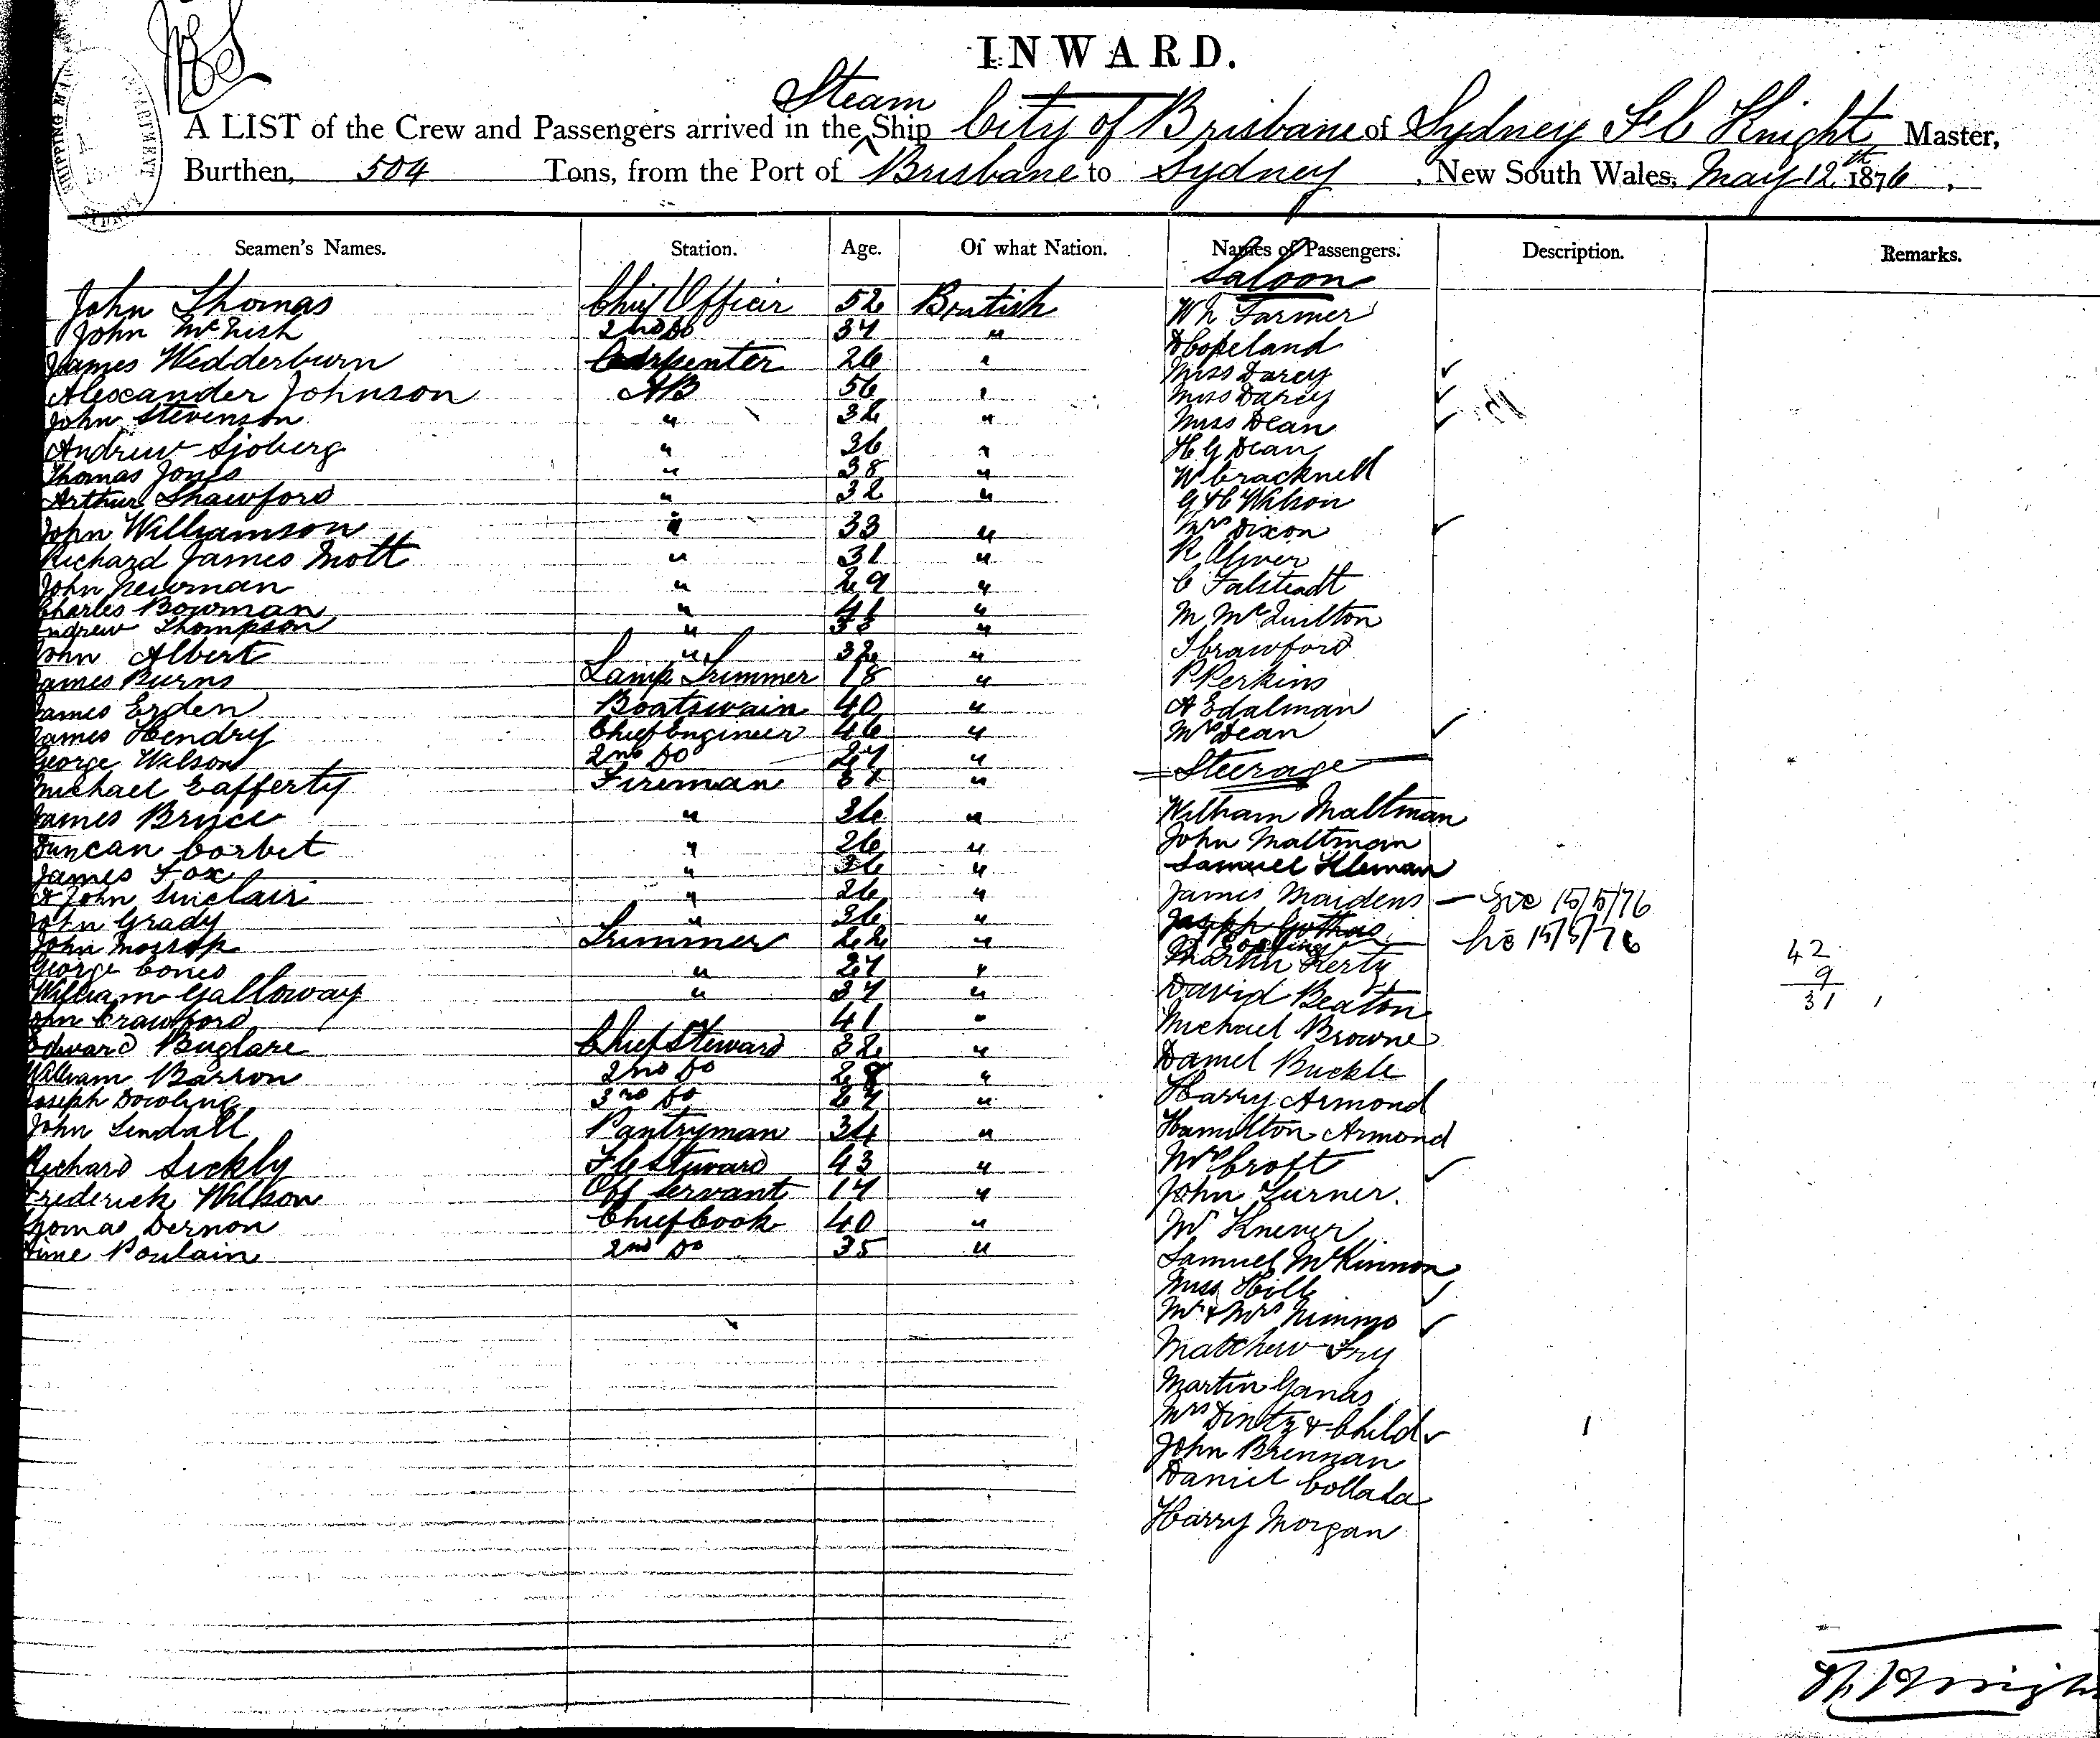 INWARD.
Steam
A LIST of the Crew and Passengers arrived in the Ship City of Brisbane of Sydney F C Knight, Master,
Burthen, 504 Tons, from the Port of Brisbane to Sydney, New South Wales, May 12th 1876.
Seamen's Names. Station. Age. Of what Nation. Names of Passengers. Description. Remarks.
Saloon
John Thomas Chief Officer 52 British Wh Farmer
John McNish 2nd Do 37 " D Copeland
James Wedderburn Carpenter 26 " Miss Darcy
Alexander Johnson AB 56 " Miss Darcy
John Stevenson " 32 " Miss Dean
Andrew Sjoberg " 36 " H G Dean
Thomas Jones " 38 " W Cracknell
Arthur Shawford " 32 " Wilson
John Williamson " 33 " Mrs Dixon
Richard James Mott " 31 " R Oliver
John Newman " 29 " C Falsteadt
Charles Bowman " 41 " M McQuilton
Andrew Thompson " 33 " J Crawford
John Albert " 32 "
James Burns Lamp Trimmer 18 " P Perkins
James Erden Boatswain 40 " A Edalman
James Hendry Chief Engineer 46 " Mrs Dean
George Wilson 2nd Do 27 " Steerage
Michael Cafferty Fireman 37 "
James Bryce " 36 " William Maltman
Duncan Corbet " 26 " John Maltman
James Fox " 36 " Samuel
John Sinclair " 26 " James Maidens 15/5/76
John Grady " 36 " Joseph
John Mossop Trimmer 22 " 15/5/76 42
George Cones " 27 " Martin Herty 9
William Galloway " 37 " David Beaton 31
John Crawford " 41 " Michael Browne
Edward Buglare Chief Steward 32 "
William Barron 2nd Do 28 " Daniel Buckle
Joseph Dowling 3rd Do 27 " Harry Armond
John Lindall Pantryman 34 " Hamilton Armond
Richard Sickly F C Steward 43 " Mrs Croft
Frederick Wilson Off Servant 17 " John Turner
Thomas Dernon Chief Cook 40 " Mr Knever
Poulain 2nd Do 35 " Samuel McKinnon
Miss Hill
Mr & Mrs Nimmo
Matthew Fry
Martin Ganas
Mrs Dintz & Child
John Brennan
Daniel Collada
Harry Morgan